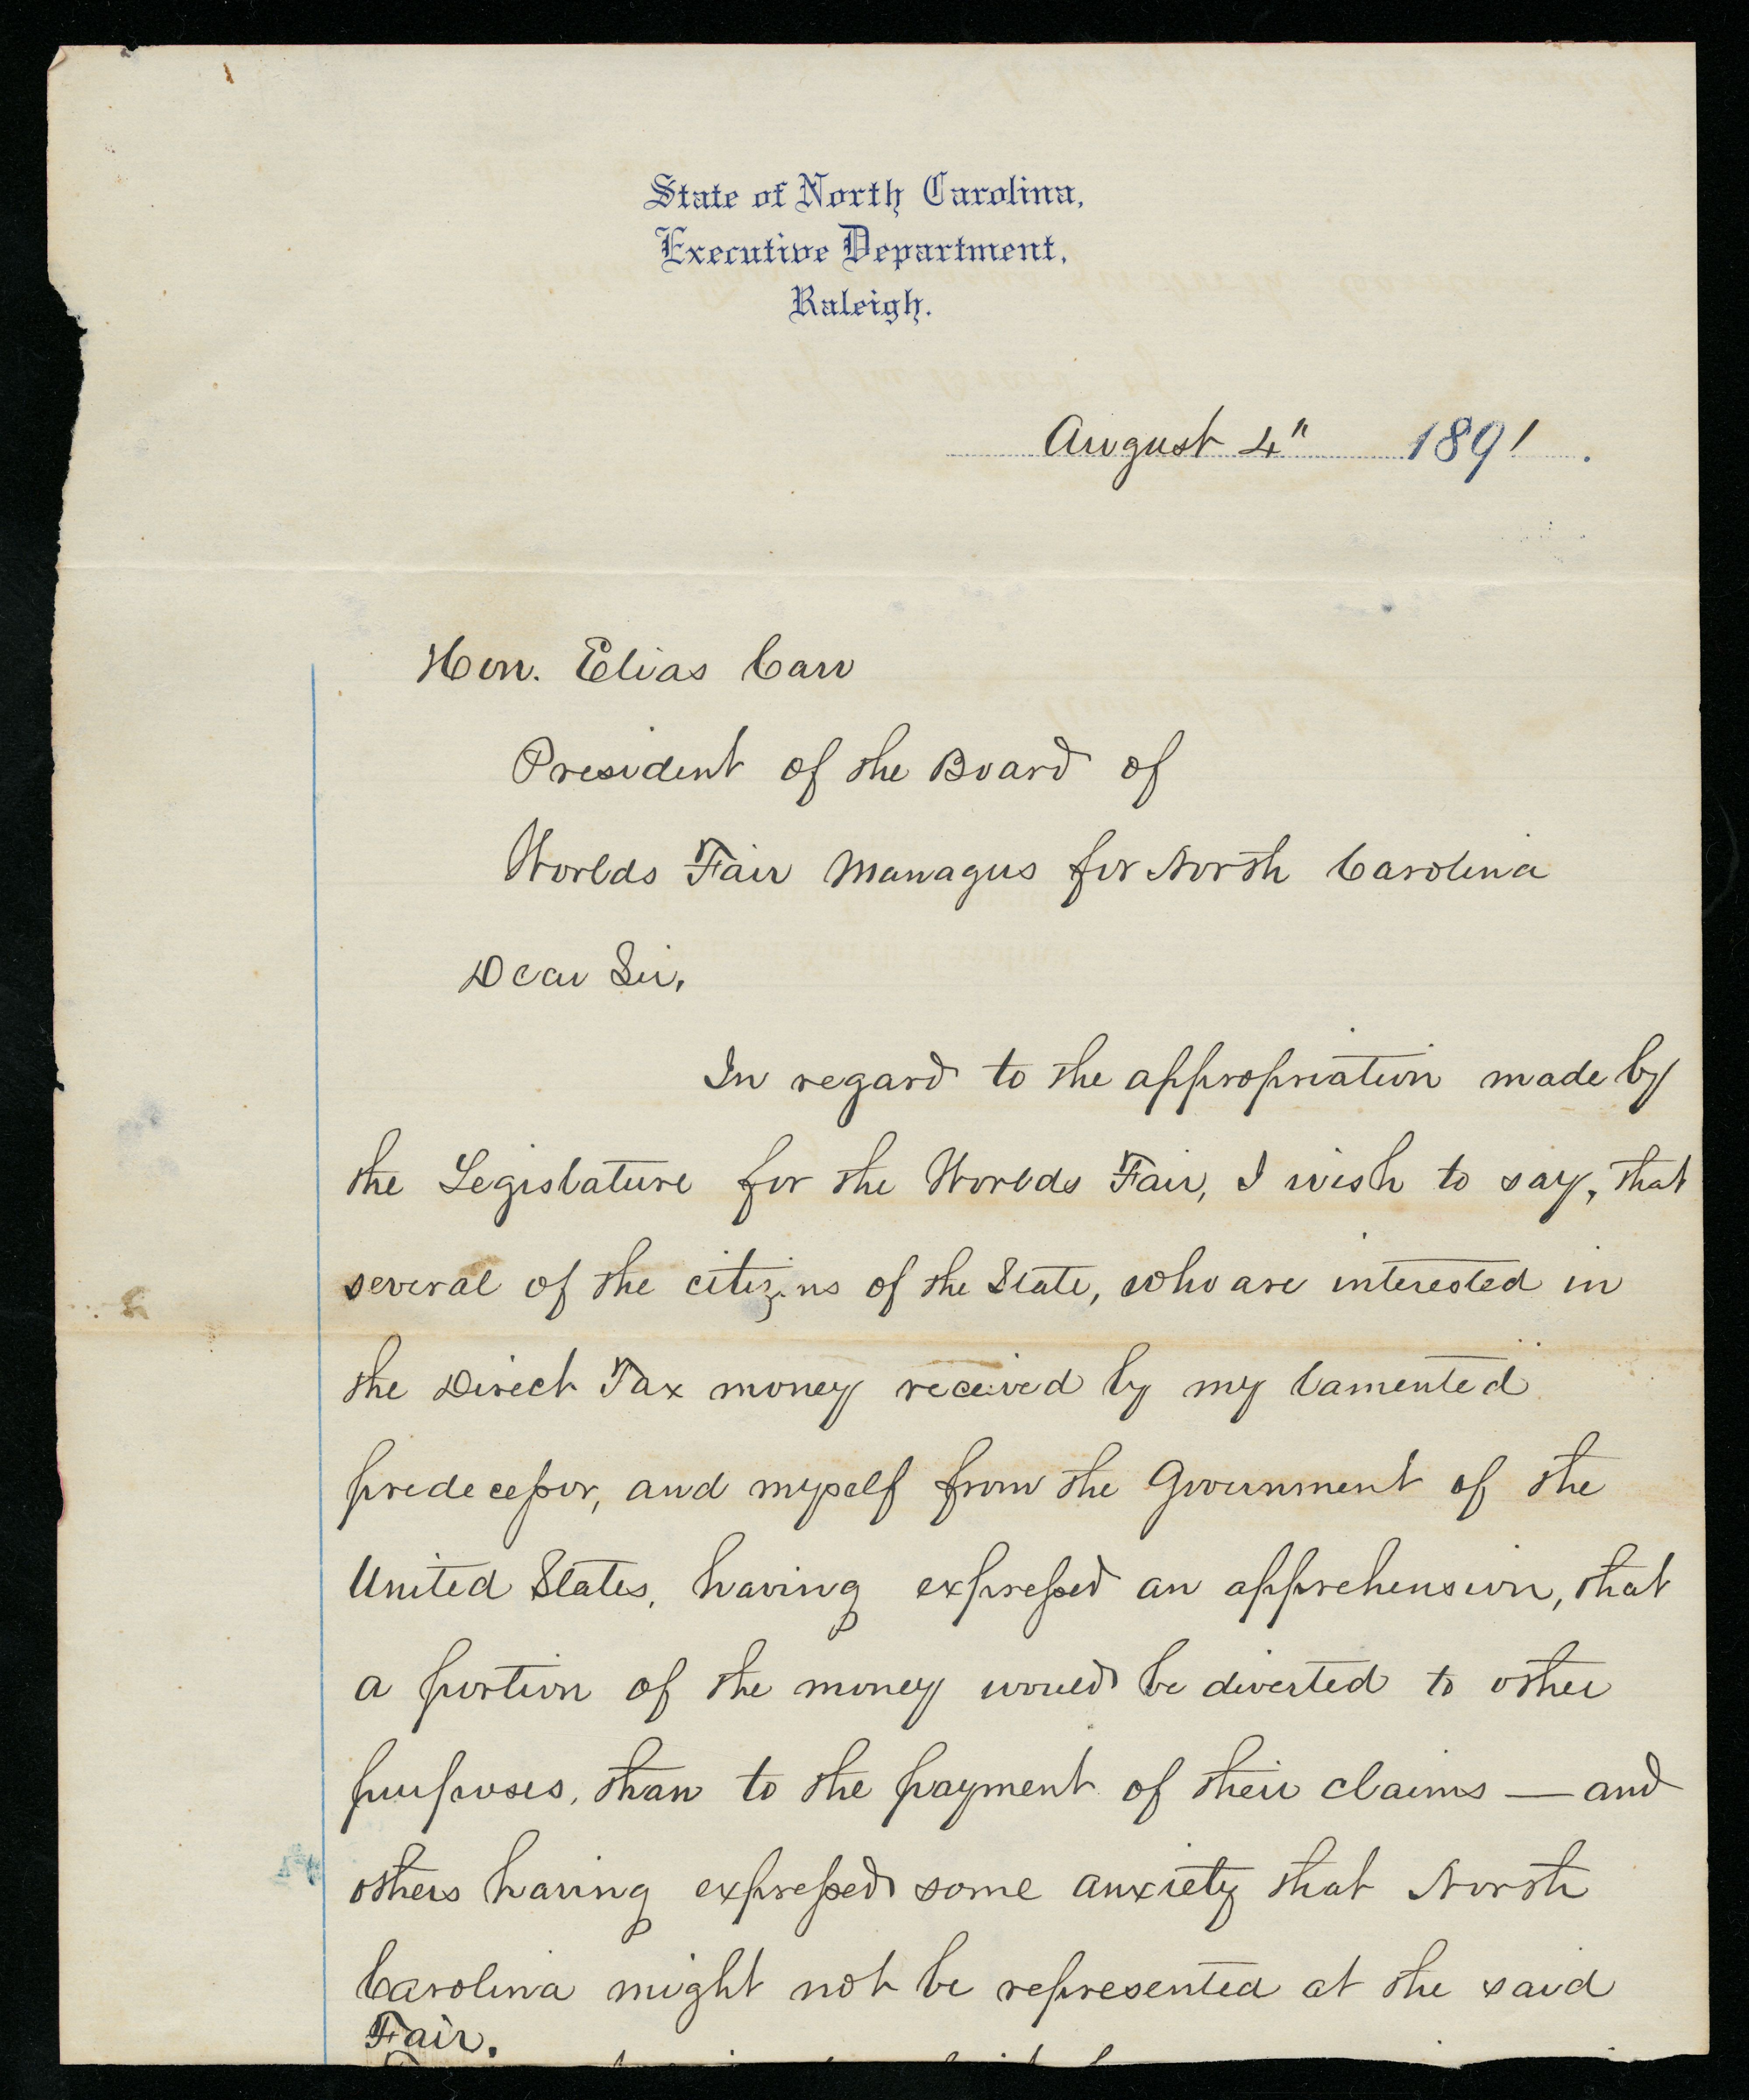 State of North Carolina,
Executive Department,
Raleigh.
August 4" 1891.
Hon. Elias Carr
President of the Board of
Worlds Fair Managers for North Carolina
Dear Sir,
In regard to the appropriation made by
the Legislature for the Worlds Fair, I wish to say, that
several of the citizens of the State, who are interested in
the Direct Tax money received by my lamented
predecessor, and myself from the Government of the
United States, having expressed an apprehension, that
a portion of the money would be diverted to other
purposes, than to the payment of their claims — and
others having expressed some anxiety that North
Carolina might not be represented at the said
Fair.